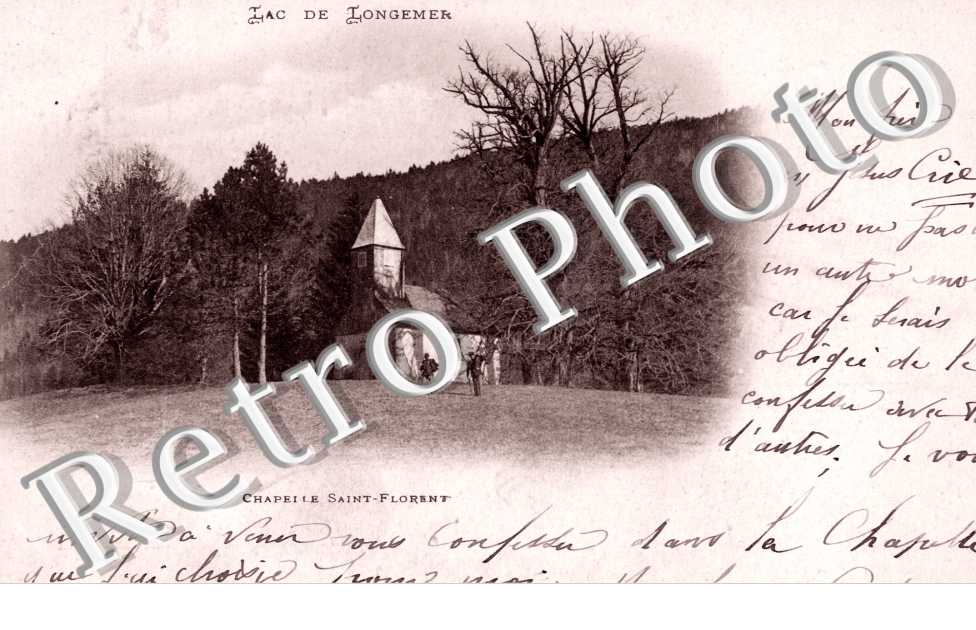 Lac de Longemer
Retro Photo
Mon
Jésus Crie
pour ne pas
un autre mo
car je serais
obligée de le
confesser avec
d'autres. Je vou
Chapelle Saint-Florent
à venir vous confesser dans la Chapelle
que j'ai choisie pour moi